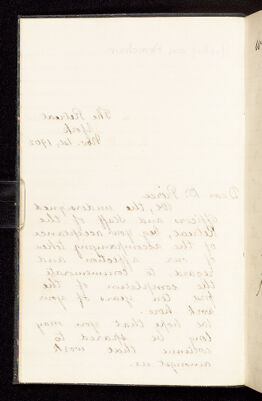 The Retreat
York
Nov. 1st, 1902
Dear Dr. Pierce
We, the undersigned
officers and staff of the
Retreat, beg your acceptance
of the accompanying token
of our affection and
regard to commemorate
the completion of the
first ten years of your
work here.
We hope that you may
long be spared to
continue that work
amongst us.